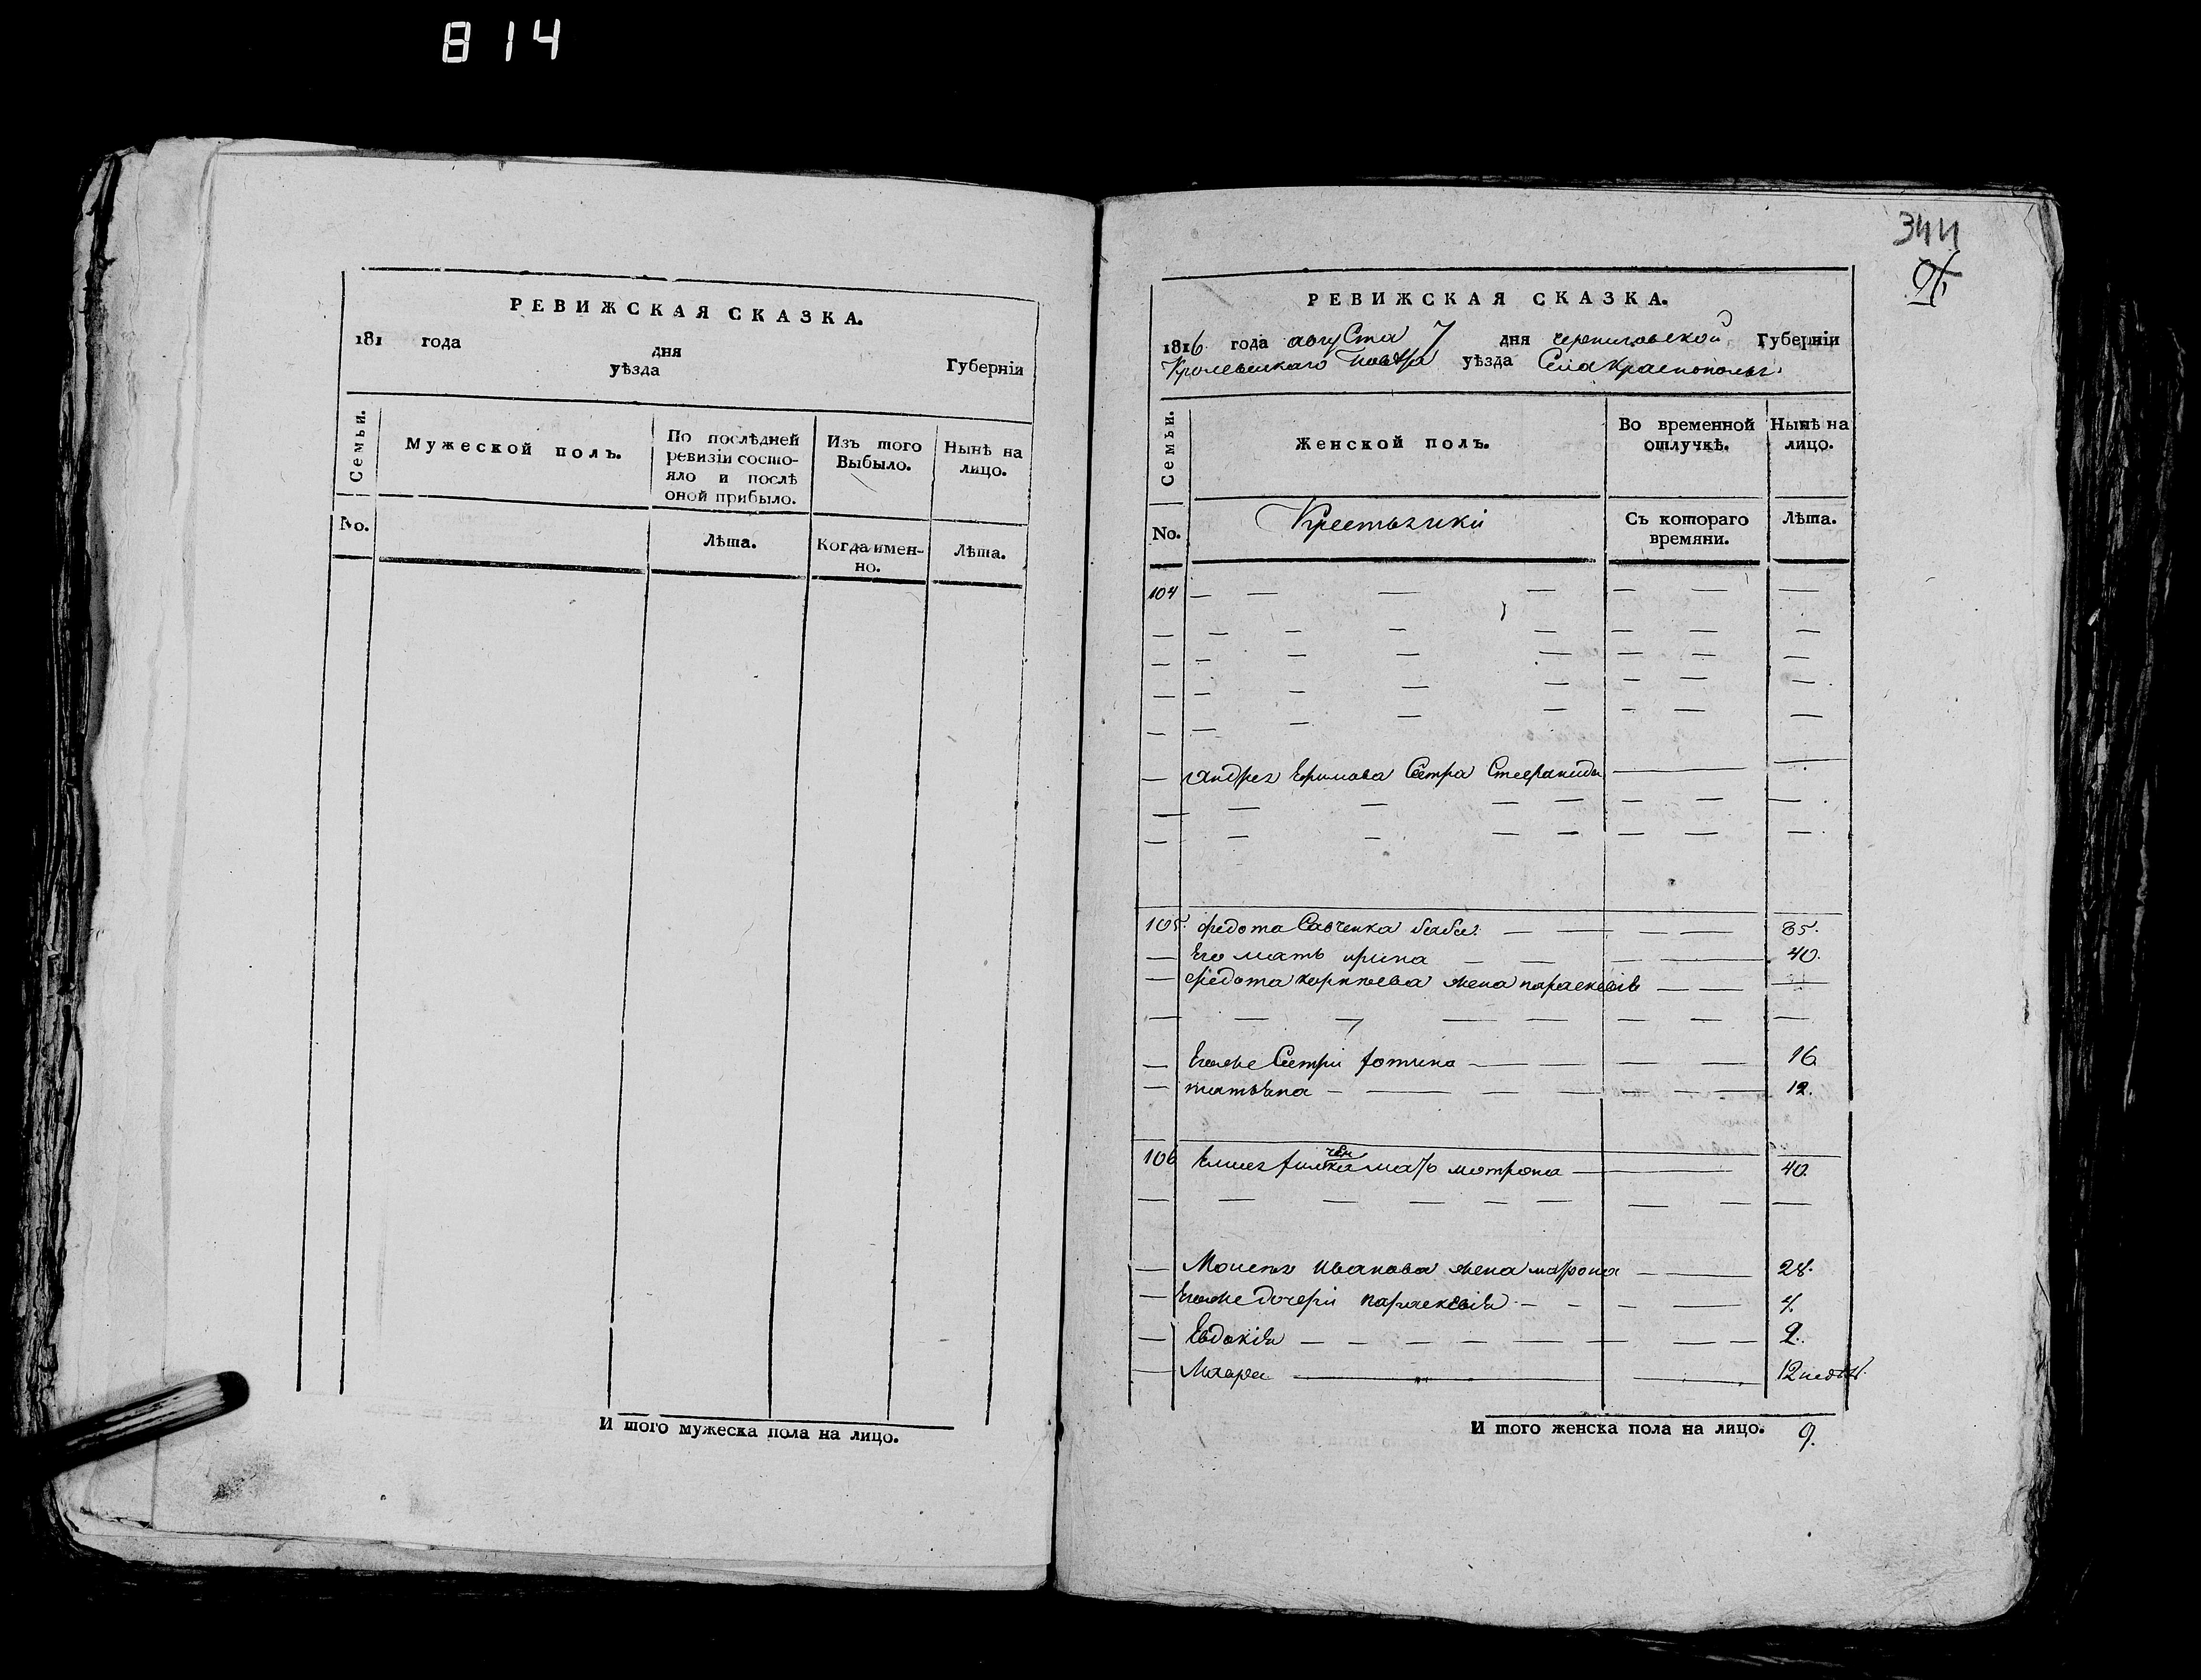 814
РЕВИЖСКАЯ СКАЗКА.
181 года дня Губернiи
уѣзда
Семьи.
Мужеской полъ.
По послѣдней ревизiи состояло и послѣ оной прибыло.
Изъ того Выбыло.
Нынѣ на лицо.
No.
Лѣта.
Когда именно.
Лѣта.
И того мужеска пола на лицо.
344
РЕВИЖСКАЯ СКАЗКА.
1816 года августа 7 дня черниговской Губернiи
Кролевецкаго повѣта уѣзда Села Краснополя
Семьи.
Женской полъ.
Во временной отлучкѣ.
Нынѣ на лицо.
No.
Крестьянки
Съ котораго времяни.
Лѣта.
104
андрея Ефимова Сестра Стефанида
105. федота Савченка баба 85.
Его мать ирина 40.
федота корнѣева жена параскевiя
Егоже Сестри фотина 16
татьяна 12.
106 мать мотрона 40.
Моисея иванова жена матрона 28.
Егоже дочери параскевiя 4.
Евдокiя 2.
12 недѣл.
И того женска пола на лицо. 9.